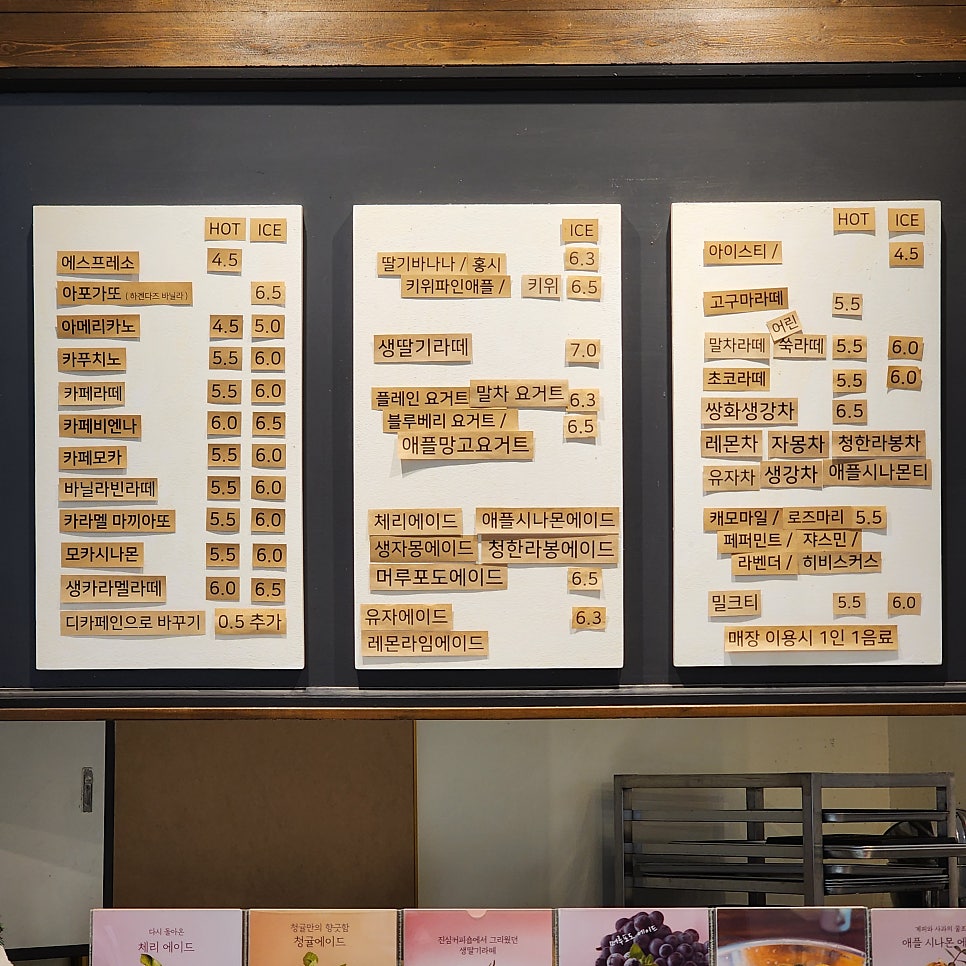 HOT ICE
에스프레소 4.5
아포가또 (하겐다즈 바닐라) 6.5
아메리카노 4.5 5.0
카푸치노 5.5 6.0
카페라떼 5.5 6.0
카페비엔나 6.0 6.5
카페모카 5.5 6.0
바닐라빈라떼 5.5 6.0
카라멜 마끼아또 5.5 6.0
모카시나몬 5.5 6.0
생카라멜라떼 6.0 6.5
디카페인으로 바꾸기 0.5 추가
ICE
딸기바나나 / 홍시 6.3
키위파인애플 / 키위 6.5
생딸기라떼 7.0
플레인 요거트 말차 요거트 6.3
블루베리 요거트 / 6.5
애플망고요거트
체리에이드 애플시나몬에이드
생자몽에이드 청한라봉에이드
머루포도에이드 6.5
유자에이드 6.3
레몬라임에이드
HOT ICE
아이스티 / 4.5
고구마라떼 5.5
어린
말차라떼 쑥라떼 5.5 6.0
초코라떼 5.5 6.0
쌍화생강차 6.5
레몬차 자몽차 청한라봉차
유자차 생강차 애플시나몬티
캐모마일 / 로즈마리 5.5
페퍼민트 / 쟈스민 /
라벤더 / 히비스커스
밀크티 5.5 6.0
매장 이용시 1인 1음료
다시 돌아온
체리 에이드
청귤만의 향긋함
청귤에이드
진심커피숍에서 그리웠던
생딸기라떼
머루포도에이드
계피와 사과의 꿀조
애플 시나몬 에